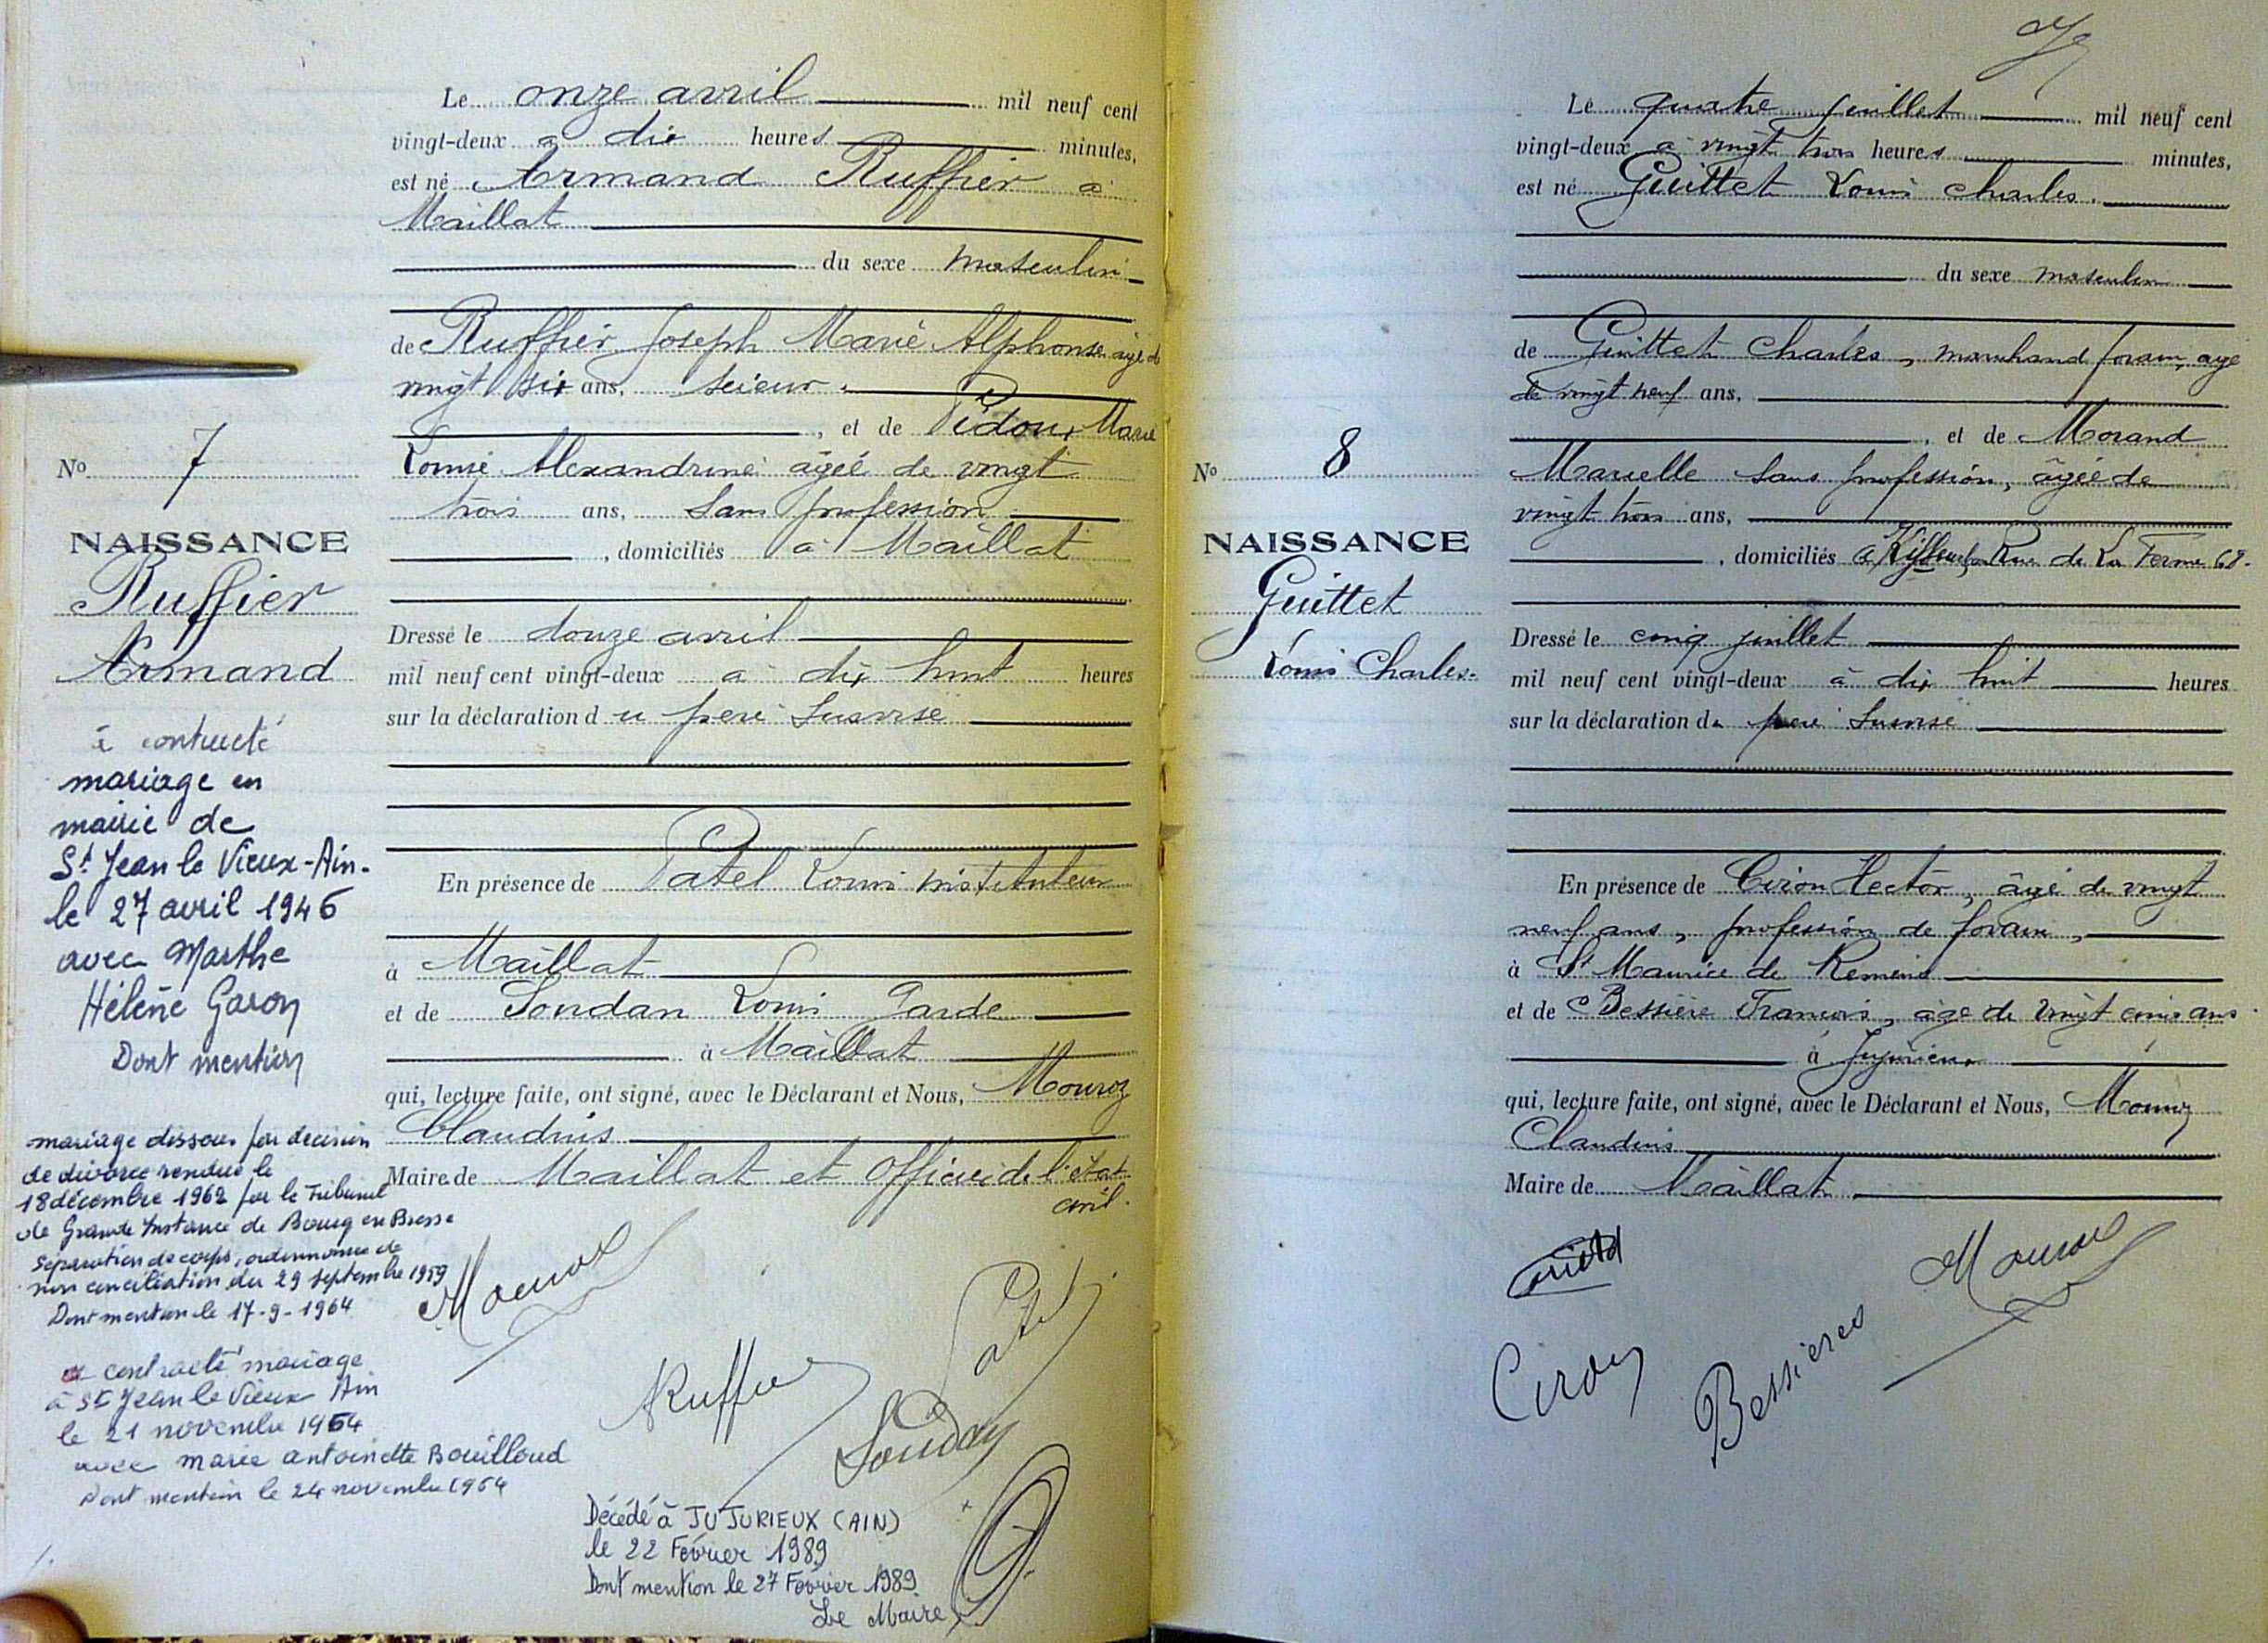 Le onze avril mil neuf cent
vingt-deux à dix heures minutes,
est né Armand Ruffier à
Maillat
du sexe masculin
de Ruffier Joseph Marie Alphonse âgé de
vingt six ans, scieur
, et de Pédoux Marie
Louise Alexandrine âgée de vingt
trois ans, sans profession
, domiciliés à Maillat
Dressé le douze avril
mil neuf cent vingt-deux à dix huit heures
sur la déclaration du père susvisé
En présence de Patel Louis instituteur
à Maillat
et de Soudan Louis Garde
à Maillat
qui, lecture faite, ont signé, avec le Déclarant et Nous, Mouroz
Claudius
Maire de Maillat et Officier de l'état
civil.
No 7
NAISSANCE
Ruffier
Armand
à contracté
mariage en
mairie de
St Jean le Vieux-Ain.
le 27 avril 1946
avec Marthe
Hélène Garon
Dont mention
mariage dissous par decision
de divorce rendue le
18 décembre 1962 par le Tribunal
de Grande Instance de Bourg en Bresse
Séparation de corps, ordonnance de
non conciliation du 29 septembre 1959
Dont mention le 17-9-1964
a contracté mariage
à St Jean le Vieux Ain
le 21 novembre 1964
avec marie antoinette Bouilloud
Dont mention le 24 novembre 1964
Mouroz
Ruffier
Patel
Soudan
Décédé à JUJURIEUX (AIN)
le 22 Février 1989
Dont mention le 27 Février 1989
Le Maire
Le quatre juillet mil neuf cent
vingt-deux à vingt trois heures minutes,
est né Guittet Louis Charles.
du sexe masculin
de Guittet Charles, marchand forain, âgé
de vingt neuf ans,
, et de Morand
Marcelle sans profession, âgée de
vingt trois ans,
, domiciliés à Rue de La Ferme 68.
No 8
NAISSANCE
Guittet
Louis Charles.
Dressé le cinq juillet
mil neuf cent vingt-deux à dix huit heures
sur la déclaration du père susvisé
En présence de Ciron Hector, âgé de vingt
neuf ans, profession de forain,
à St Maurice de Remens
et de Bessière François, âgé de vingt cinq ans
à Jujurieux
qui, lecture faite, ont signé, avec le Déclarant et Nous, Mouroz
Claudius
Maire de Maillat
Mouroz
Ciron
Bessieres